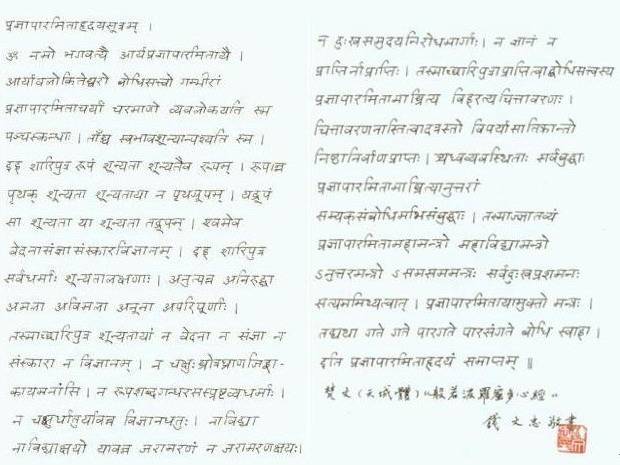 प्रज्ञापारमिताहृदयसूत्रम् ।
ॐ नमो भगवत्यै आर्यप्रज्ञापारमितायै ।
आर्यावलोकितेश्वरो बोधिसत्त्वो गम्भीरां
प्रज्ञापारमिताचर्यां चरमाणो व्यवलोकयति स्म
पञ्चस्कन्धाः । ताँश्च स्वभावशून्यान्पश्यति स्म ।
इह शारिपुत्र रूपं शून्यता शून्यतैव रूपम् । रूपान्न
पृथक् शून्यता शून्यताया न पृथग्रूपम् । यद्रूपं
सा शून्यता या शून्यता तद्रूपम् । एवमेव
वेदनासंज्ञासंस्कारविज्ञानम् । इह शारिपुत्र
सर्वधर्माः शून्यतालक्षणाः । अनुत्पन्ना अनिरुद्धा
अमला अविमला अनूना अपरिपूर्णाः ।
तस्माच्छारिपुत्र शून्यतायां न वेदना न संज्ञा न
संस्कारा न विज्ञानम् । न चक्षुःश्रोत्रघ्राणजिह्वा-
कायमनांसि । न रूपशब्दगन्धरसस्प्रष्टव्यधर्माः ।
न चक्षुर्धातुर्यावन्न विज्ञानधतुः । नाविद्या
नाविद्याक्षयो यावन्न जरामरणं न जरामरणक्षयः ।
न दुःखसमुदयनिरोधमार्गाः । न ज्ञानं न
प्राप्तिर्नाप्राप्तिः । तस्माच्छारिपुत्राप्राप्तित्वाद्बोधिसत्त्वस्य
प्रज्ञापारमितामाश्रित्य विहरत्यचित्तावरणः ।
चित्तावरणनास्तित्वादत्रस्तो विपर्यासातिक्रान्तो
निष्ठानिर्वाणप्राप्तः । त्र्यध्वव्यवस्थिताः सर्वबुद्धाः
प्रज्ञापारमितामाश्रित्यानुत्तरां
सम्यक्संबोधिमभिसंबुद्धाः । तस्माज्ज्ञातव्यं
प्रज्ञापारमितामहामन्त्रो महाविद्यामन्त्रो
ऽनुत्तरमन्त्रो ऽसमसममन्त्रः सर्वदुःखप्रशमनः
सत्यममिथ्यत्वात् । प्रज्ञापारमितायामुक्तो मन्त्रः ।
तद्यथा गते गते पारगते पारसंगते बोधि स्वाहा ।
इति प्रज्ञापारमिताहृदयं समाप्तम् ॥
梵文(天城體)《般若波羅蜜多心經》
錢文忠敬書